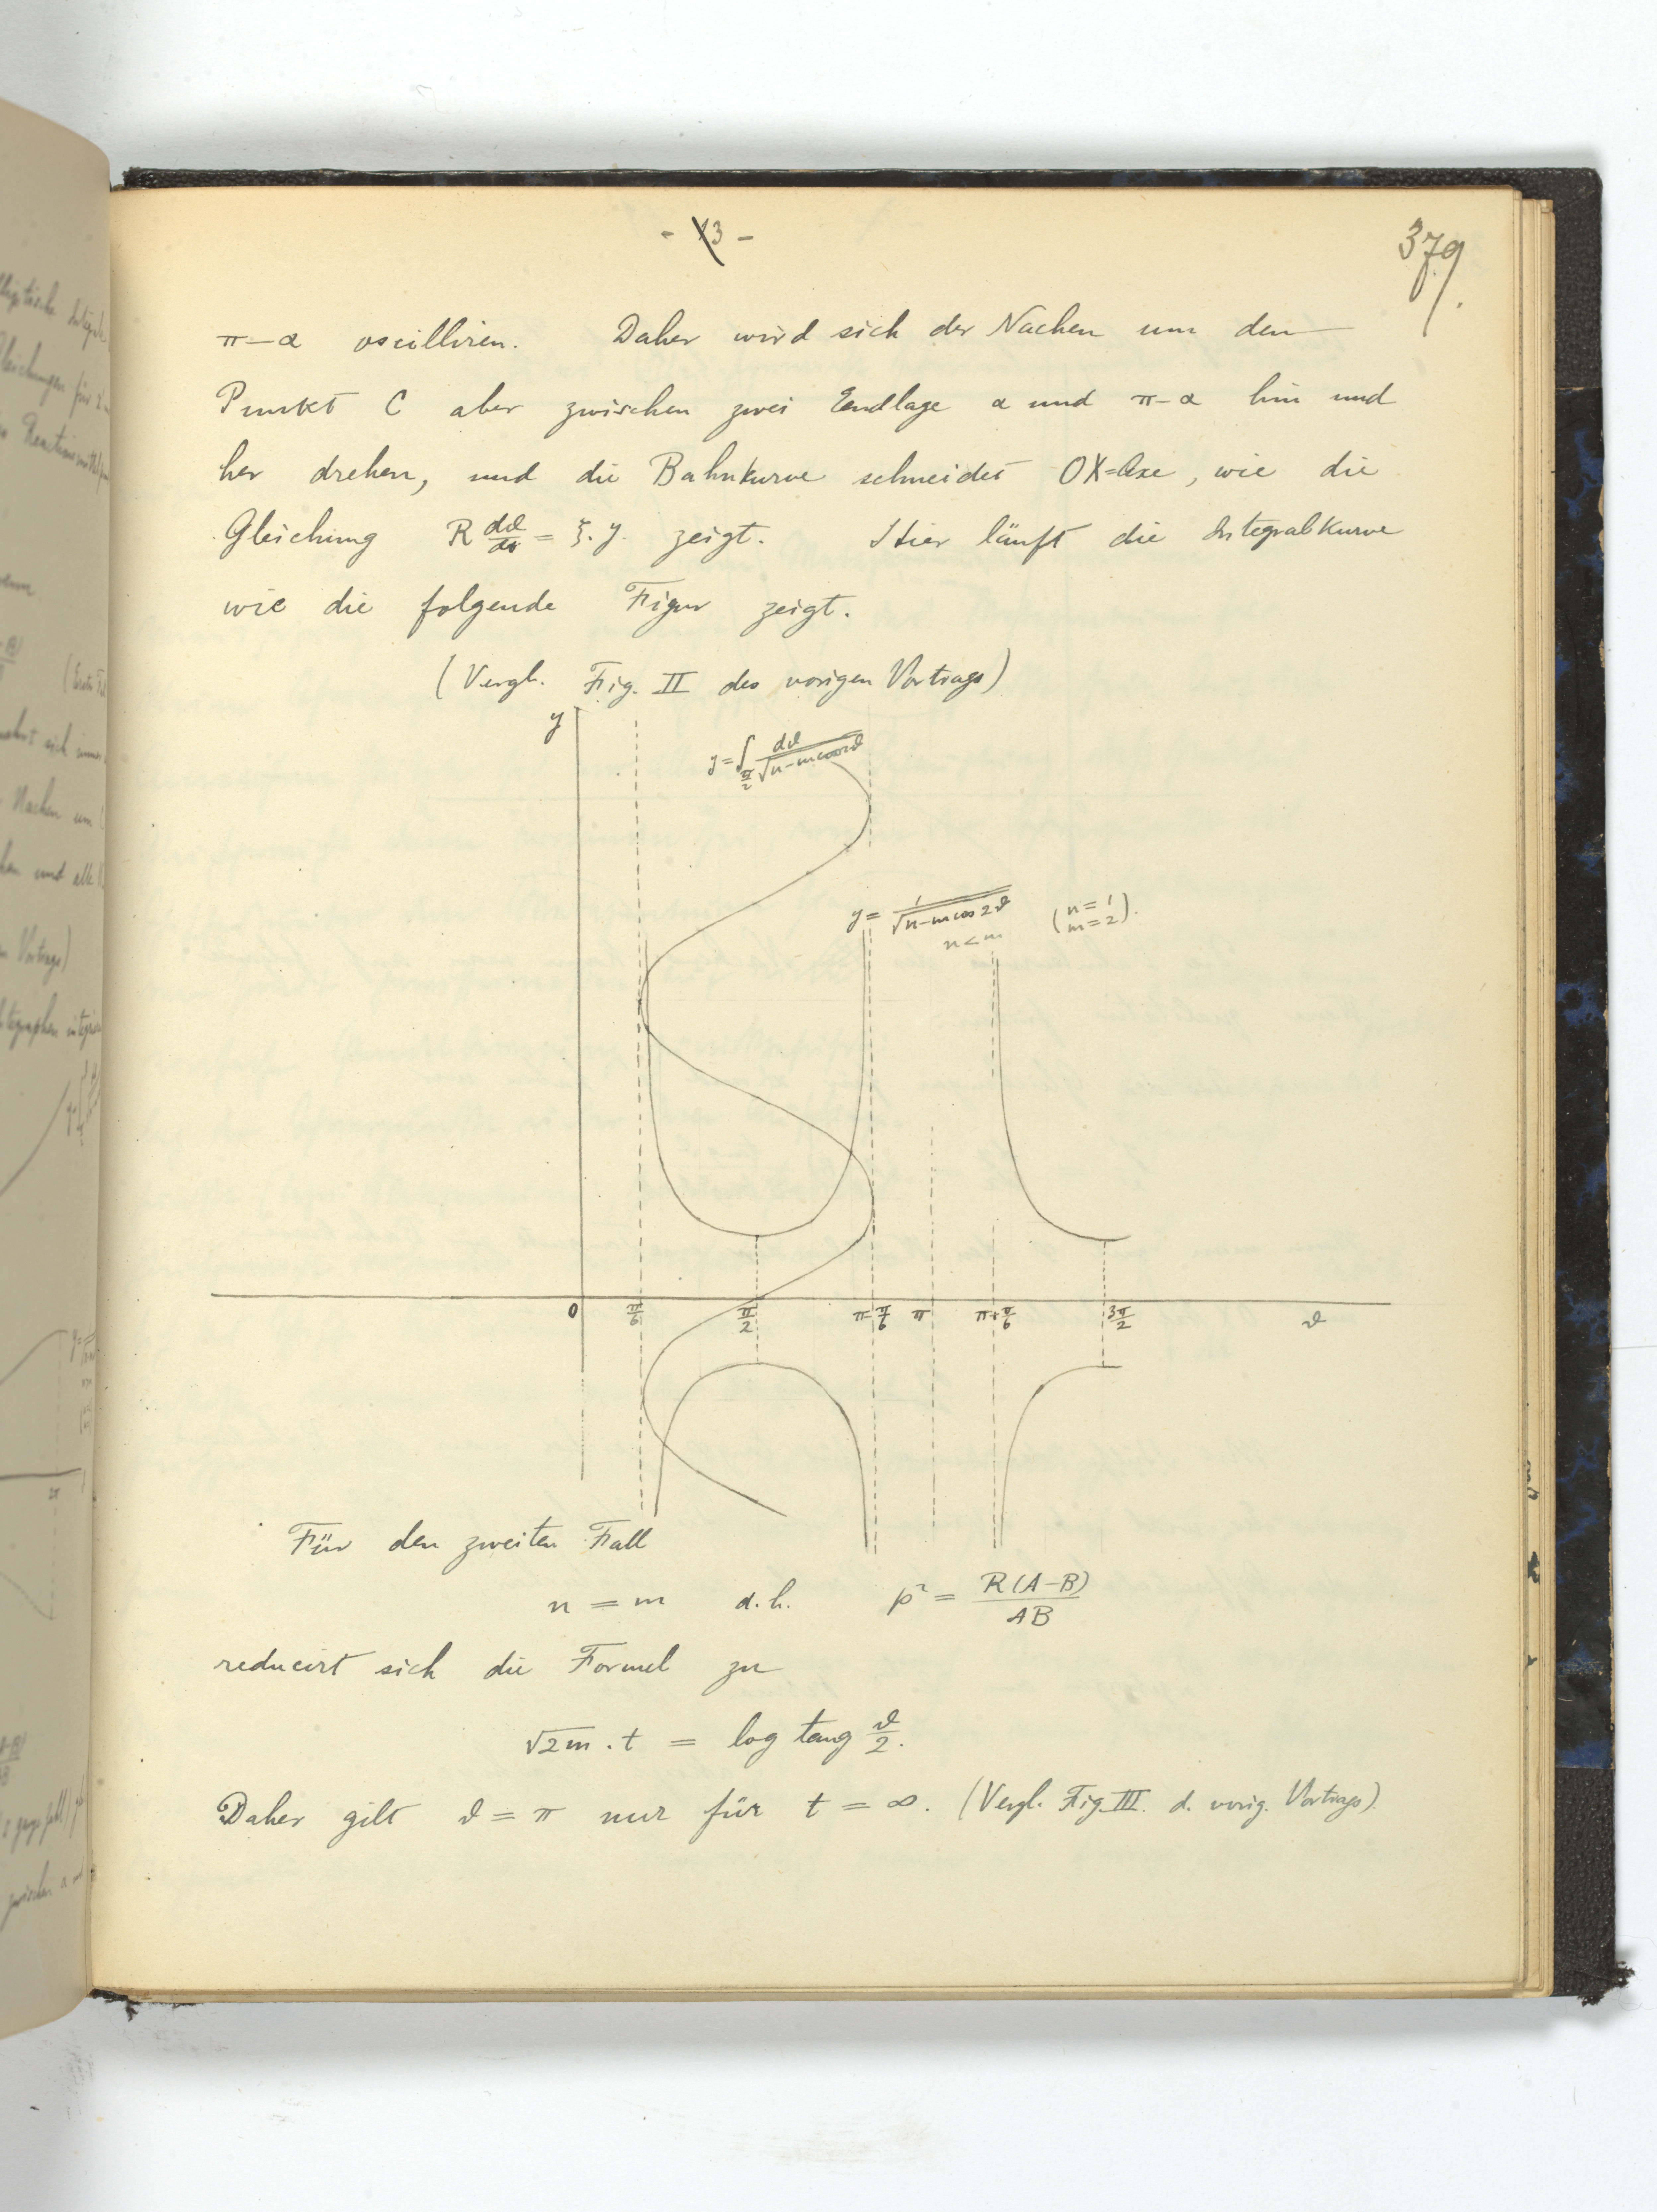 - 13 -
379.
π-α oscilliren. Daher wird sich der Nachen um den
Punkt C aber zwischen zwei Endlage α und π-α hin und
her drehen, und die Bahnkurve schneidet OX=Axe, wie die
Gleichung R dϑ/dt = ξ. y. zeigt. Hier läuft die Integralkurve
wie die folgende Figur zeigt.
(Vergl. Fig. II des vorigen Vortrags)
y
y = ∫ π/2 dϑ/√n-mcos2ϑ
y = 1/√n-mcos2ϑ (n=1 m=2).
n<m
0 π/6 π/2 π-π/6 π π+π/6 3π/2 ϑ
Für den zweiten Fall
n = m d.h. p² = R(A-B)/AB
reducirt sich die Formel zu
√2m . t = log tang ϑ/2.
Daher gilt ϑ = π nur für t = ∞. (Vergl. Fig. III. d. vorig. Vortrags).